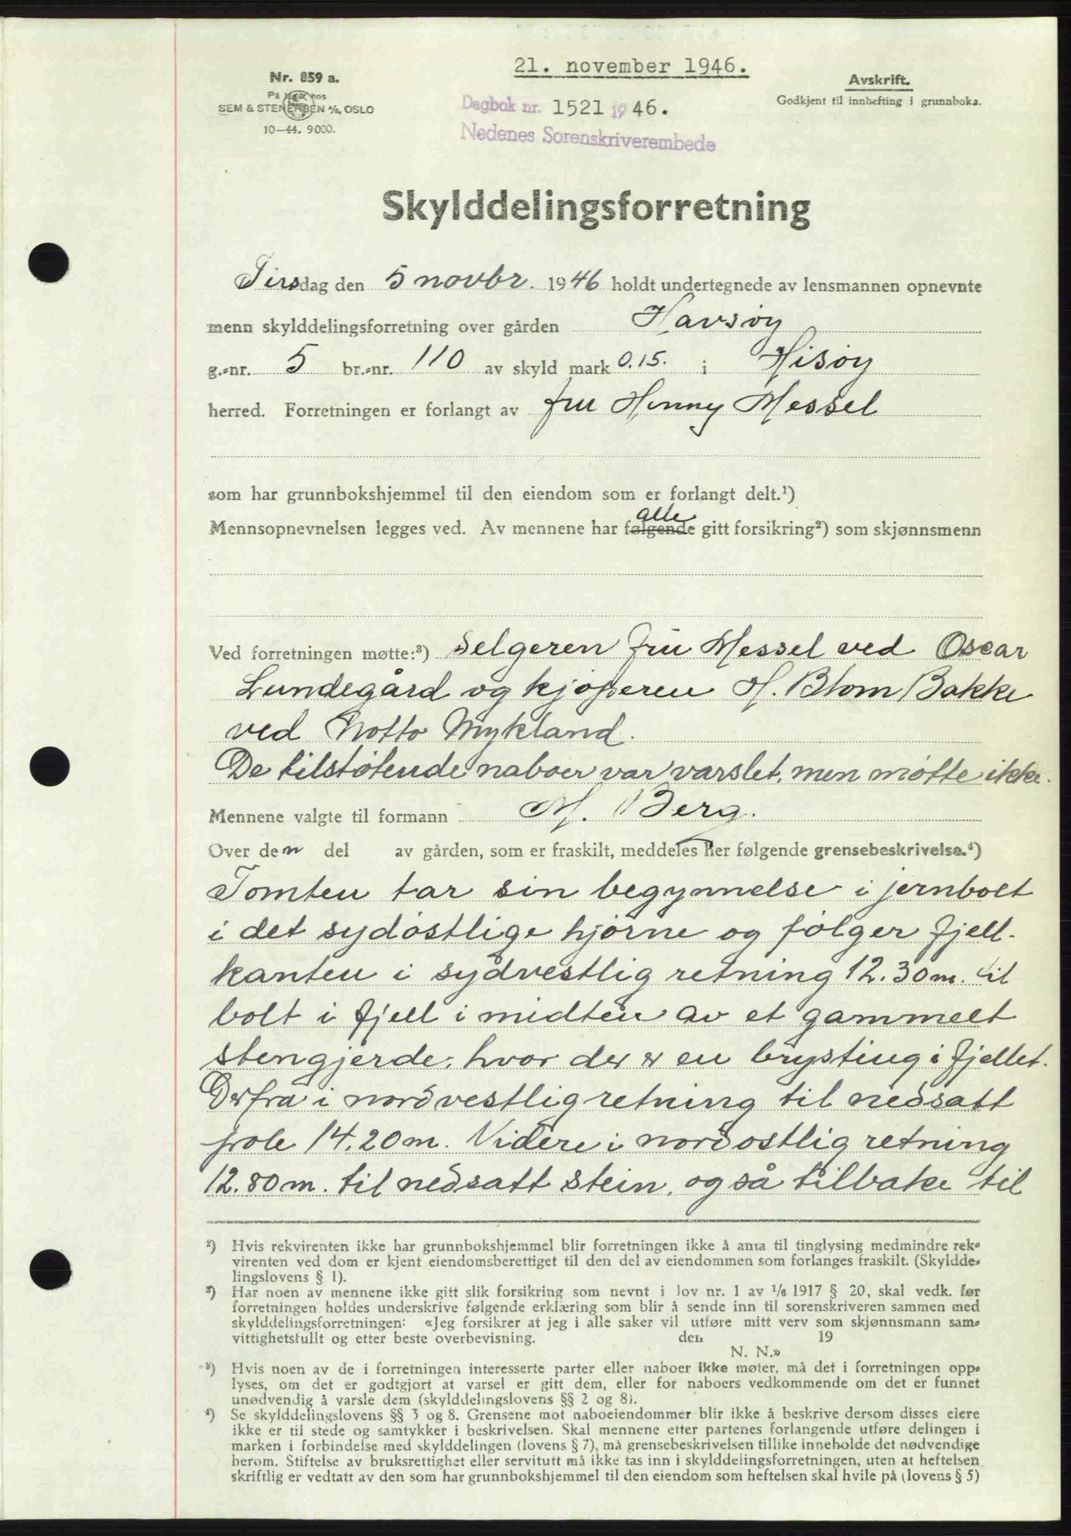 21. november 1946.
Nr. 859 a.
På lager hos
SEM & STENERSEN A/S, OSLO
10-44. 9000.
Avskrift.
Godkjent til innhefting i grunnboka.
Dagbok nr. 1521 1946.
Nedenes Sorenskriverembede
Skylddelingsforretning
Tirsdag den 5 novbr. 1946 holdt undertegnede av lensmannen opnevnte
menn skylddelingsforretning over gården Havsøy
g.-nr. 5 br.-nr. 110 av skyld mark 0.15. i Hisøy
herred. Forretningen er forlangt av fru Henny Messel
som har grunnbokshjemmel til den eiendom som er forlangt delt.¹)
alle
Mennsopnevnelsen legges ved. Av mennene har følgende gitt forsikring²) som skjønnsmenn
Ved forretningen møtte:³) Selgeren fru Messel ved Oscar
Lundegård og kjøperen H. Blom Bakke
ved Notto Mykland.
De tilstøtende naboer var varslet, men møtte ikke.
Mennene valgte til formann M. Berg.
Over den del av gården, som er fraskilt, meddeles her følgende grensebeskrivelse.⁴)
Tomten tar sin begynnelse i jernbolt
i det sydøstlige hjørne og følger fjell-
kanten i sydvestlig retning 12.30 m. til
bolt i fjell i midten av et gammelt
stengjerde, hvor der er en brysting i fjellet.
Derfra i nordvestlig retning til nedsatt
pole 14.20 m. Videre i nordostlig retning
12.80 m. til nedsatt stein, og så tilbake til
¹) Hvis rekvirenten ikke har grunnbokshjemmel blir forretningen ikke å anta til tinglysing medmindre rek-
virenten ved dom er kjent eiendomsberettiget til den del av eiendommen som forlanges fraskilt. (Skyldde-
lingslovens § 1).
²) Har noen av mennene ikke gitt slik forsikring som nevnt i lov nr. 1 av 1/6 1917 § 20, skal vedk. før
forretningen holdes underskrive følgende erklæring som blir å sende inn til sorenskriveren sammen med
skylddelingsforretningen: «Jeg forsikrer at jeg i alle saker vil utføre mitt verv som skjønnsmann sam-
vittighetsfullt og etter beste overbevisning. den 19
N. N.»
³) Hvis noen av de i forretningen interesserte parter eller naboer ikke møter, må det i forretningen opp-
lyses, om det er godtgjort at varsel er gitt dem, eller for naboers vedkommende om det er funnet
unødvendig å varsle dem (skylddelingslovens §§ 2 og 8).
⁴) Se skylddelingslovens §§ 3 og 8. Grensene mot naboeiendommer blir ikke å beskrive dersom disses eiere
ikke er til stede og samtykker i beskrivelsen. Skal mennene etter partenes forlangende utføre delingen i
marken i forbindelse med skylddelingen (lovens § 7), må grensebeskrivelsen tillike inneholde det nødvendige
herom. Stiftelse av bruksrettighet eller servitutt må ikke tas inn i skylddelingsforretningen, uten at heftelsen
skriftlig er vedtatt av den som har grunnbokshjemmel til den eiendom som heftelsen skal hvile på (lovens § 5)